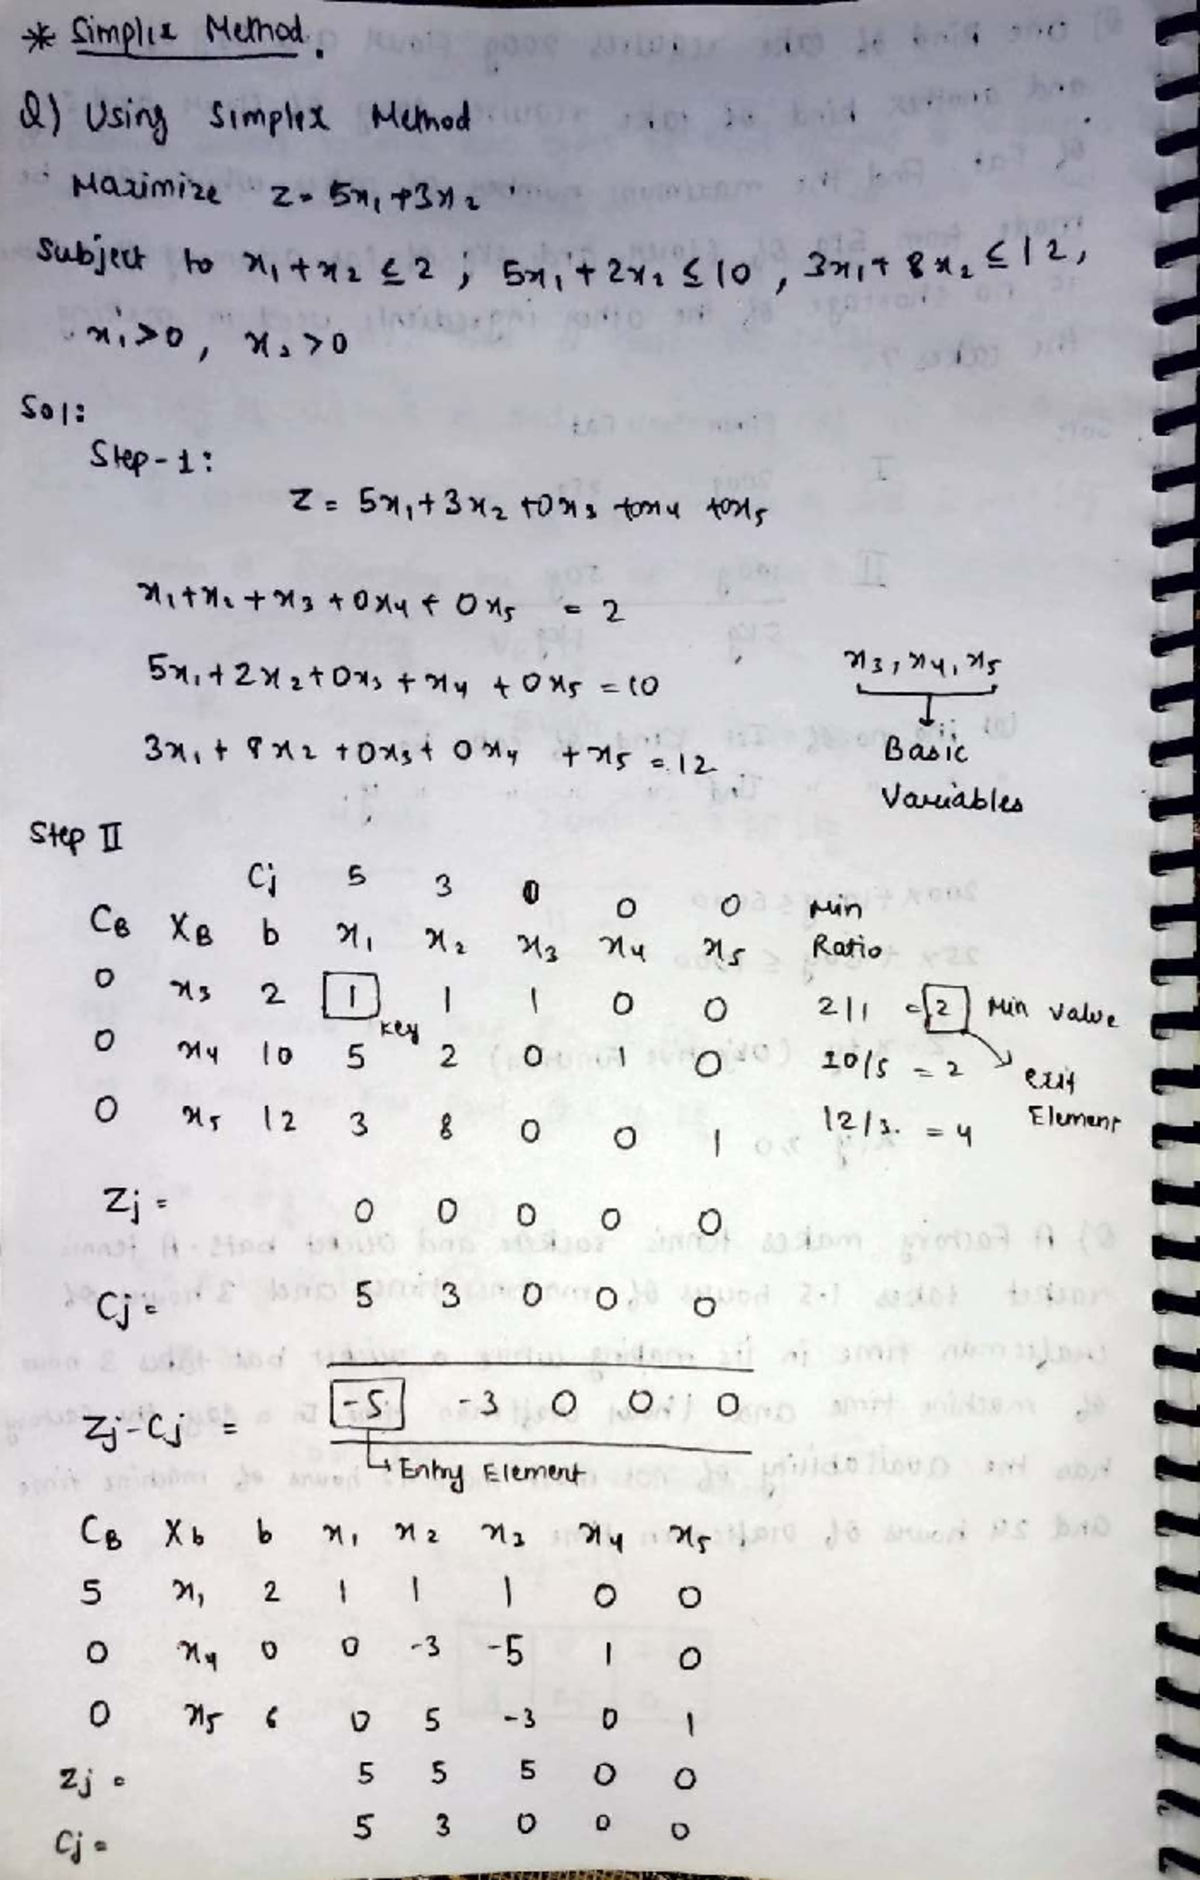 * Simplex Method.
Q) Using Simplex Method
Maximize Z = 5x₁ + 3x₂
Subject to x₁ + x₂ ≤ 2 ; 5x₁ + 2x₂ ≤ 10 , 3x₁ + 8x₂ ≤ 12,
x₁ > 0 , x₂ > 0
Sol:
Step-1:
Z = 5x₁ + 3x₂ + 0x₃ + 0x₄ + 0x₅
x₁ + x₂ + x₃ + 0x₄ + 0x₅ = 2
5x₁ + 2x₂ + 0x₃ + x₄ + 0x₅ = 10
3x₁ + 8x₂ + 0x₃ + 0x₄ + x₅ = 12
x₃, x₄, x₅
Basic
Variables
Step II
Cj 5 3 0 0 0 Min
CB XB b x₁ x₂ x₃ x₄ x₅ Ratio
0 x₃ 2 1 1 1 0 0 2/1 = 2 Min value
key
0 x₄ 10 5 2 0 1 0 10/5 = 2 exit
0 x₅ 12 3 8 0 0 1 12/3. = 4 Element
Zj = 0 0 0 0 0
Cj = 5 3 0 0 0
Zj-Cj = -5 -3 0 0 0
Entry Element
CB Xb b x₁ x₂ x₃ x₄ x₅
5 x₁ 2 1 1 1 0 0
0 x₄ 0 0 -3 -5 1 0
0 x₅ 6 0 5 -3 0 1
Zj = 5 5 5 0 0
Cj = 5 3 0 0 0